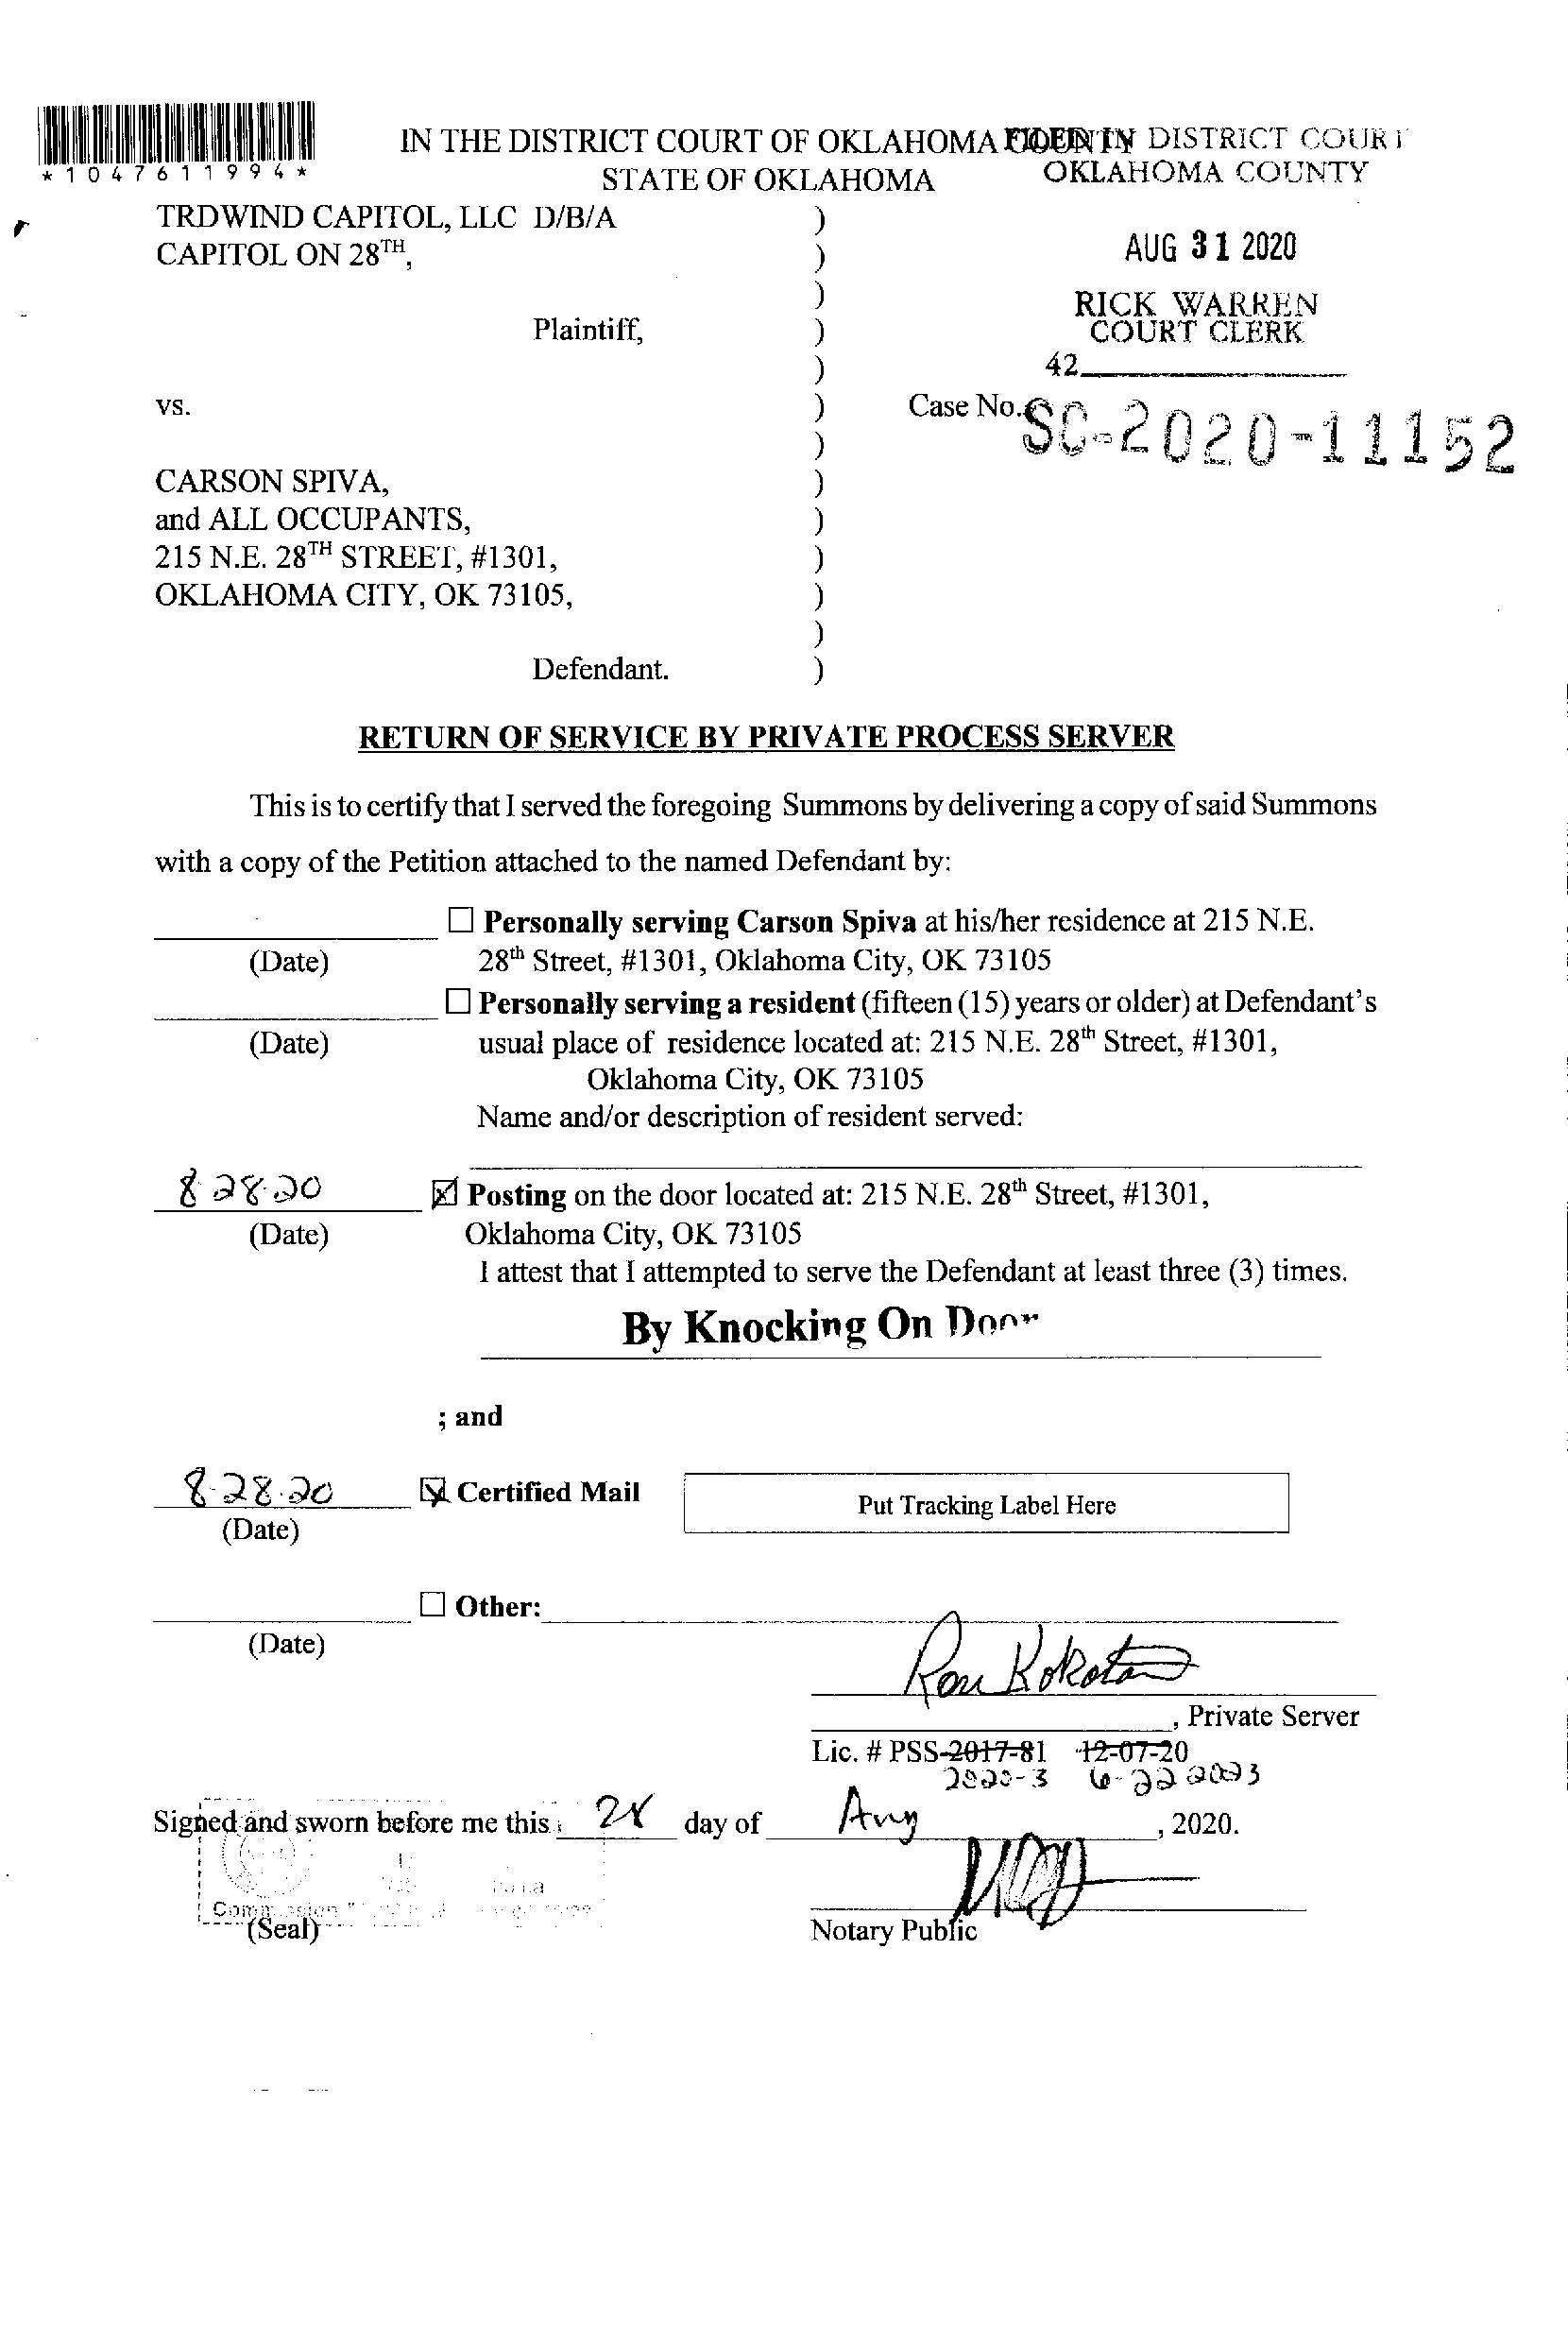 *1047611994*
IN THE DISTRICT COURT OF OKLAHOMA COUNTY
STATE OF OKLAHOMA
FILED IN DISTRICT COURT
OKLAHOMA COUNTY
AUG 31 2020
RICK WARREN
COURT CLERK
42
TRDWIND CAPITOL, LLC D/B/A )
CAPITOL ON 28TH, )
)
Plaintiff, )
)
vs. )
Case No. SC-2020-11152
)
CARSON SPIVA, )
and ALL OCCUPANTS, )
215 N.E. 28TH STREET, #1301, )
OKLAHOMA CITY, OK 73105, )
)
Defendant. )
RETURN OF SERVICE BY PRIVATE PROCESS SERVER
This is to certify that I served the foregoing Summons by delivering a copy of said Summons
with a copy of the Petition attached to the named Defendant by:
☐ Personally serving Carson Spiva at his/her residence at 215 N.E.
(Date) 28th Street, #1301, Oklahoma City, OK 73105
☐ Personally serving a resident (fifteen (15) years or older) at Defendant's
(Date) usual place of residence located at: 215 N.E. 28th Street, #1301,
Oklahoma City, OK 73105
Name and/or description of resident served:
8 28 20 ☒ Posting on the door located at: 215 N.E. 28th Street, #1301,
(Date) Oklahoma City, OK 73105
I attest that I attempted to serve the Defendant at least three (3) times.
By Knocking On Door
; and
8-28-20 ☒ Certified Mail Put Tracking Label Here
(Date)
☐ Other:
(Date)
Ron Kokota
, Private Server
Lic. # PSS-2017-81 12-07-20
2020-3 6-22 2023
Signed and sworn before me this 28 day of Aug, 2020.
Commission
(Seal)
Notary Public